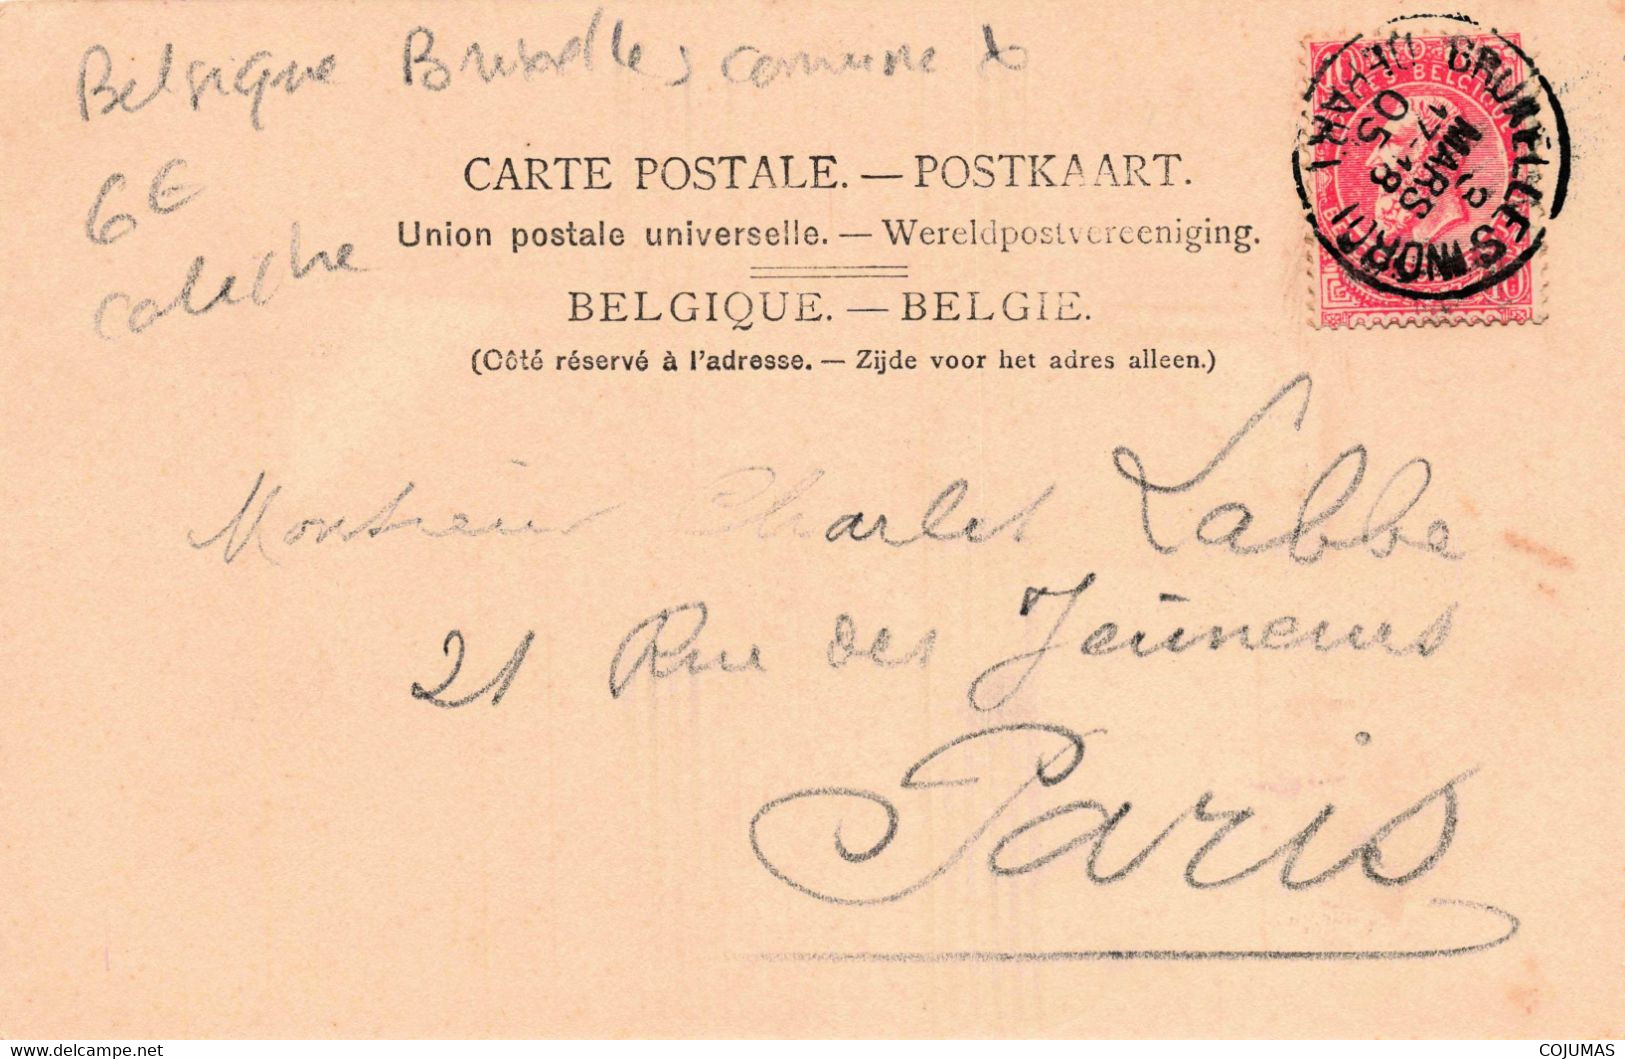 Belgique Bruxelles commune
6€
caleche
CARTE POSTALE. — POSTKAART.
Union postale universelle. — Wereldpostvereeniging.
BELGIQUE. — BELGIE.
(Côté réservé à l'adresse. — Zijde voor het adres alleen.)
BRUXELLES (NORD)
DÉPART
3 MARS
17-18
05
BELGIQUE
10
Monsieur Charles Labbe
21 Rue des Jeuneurs
Paris
COJUMAS